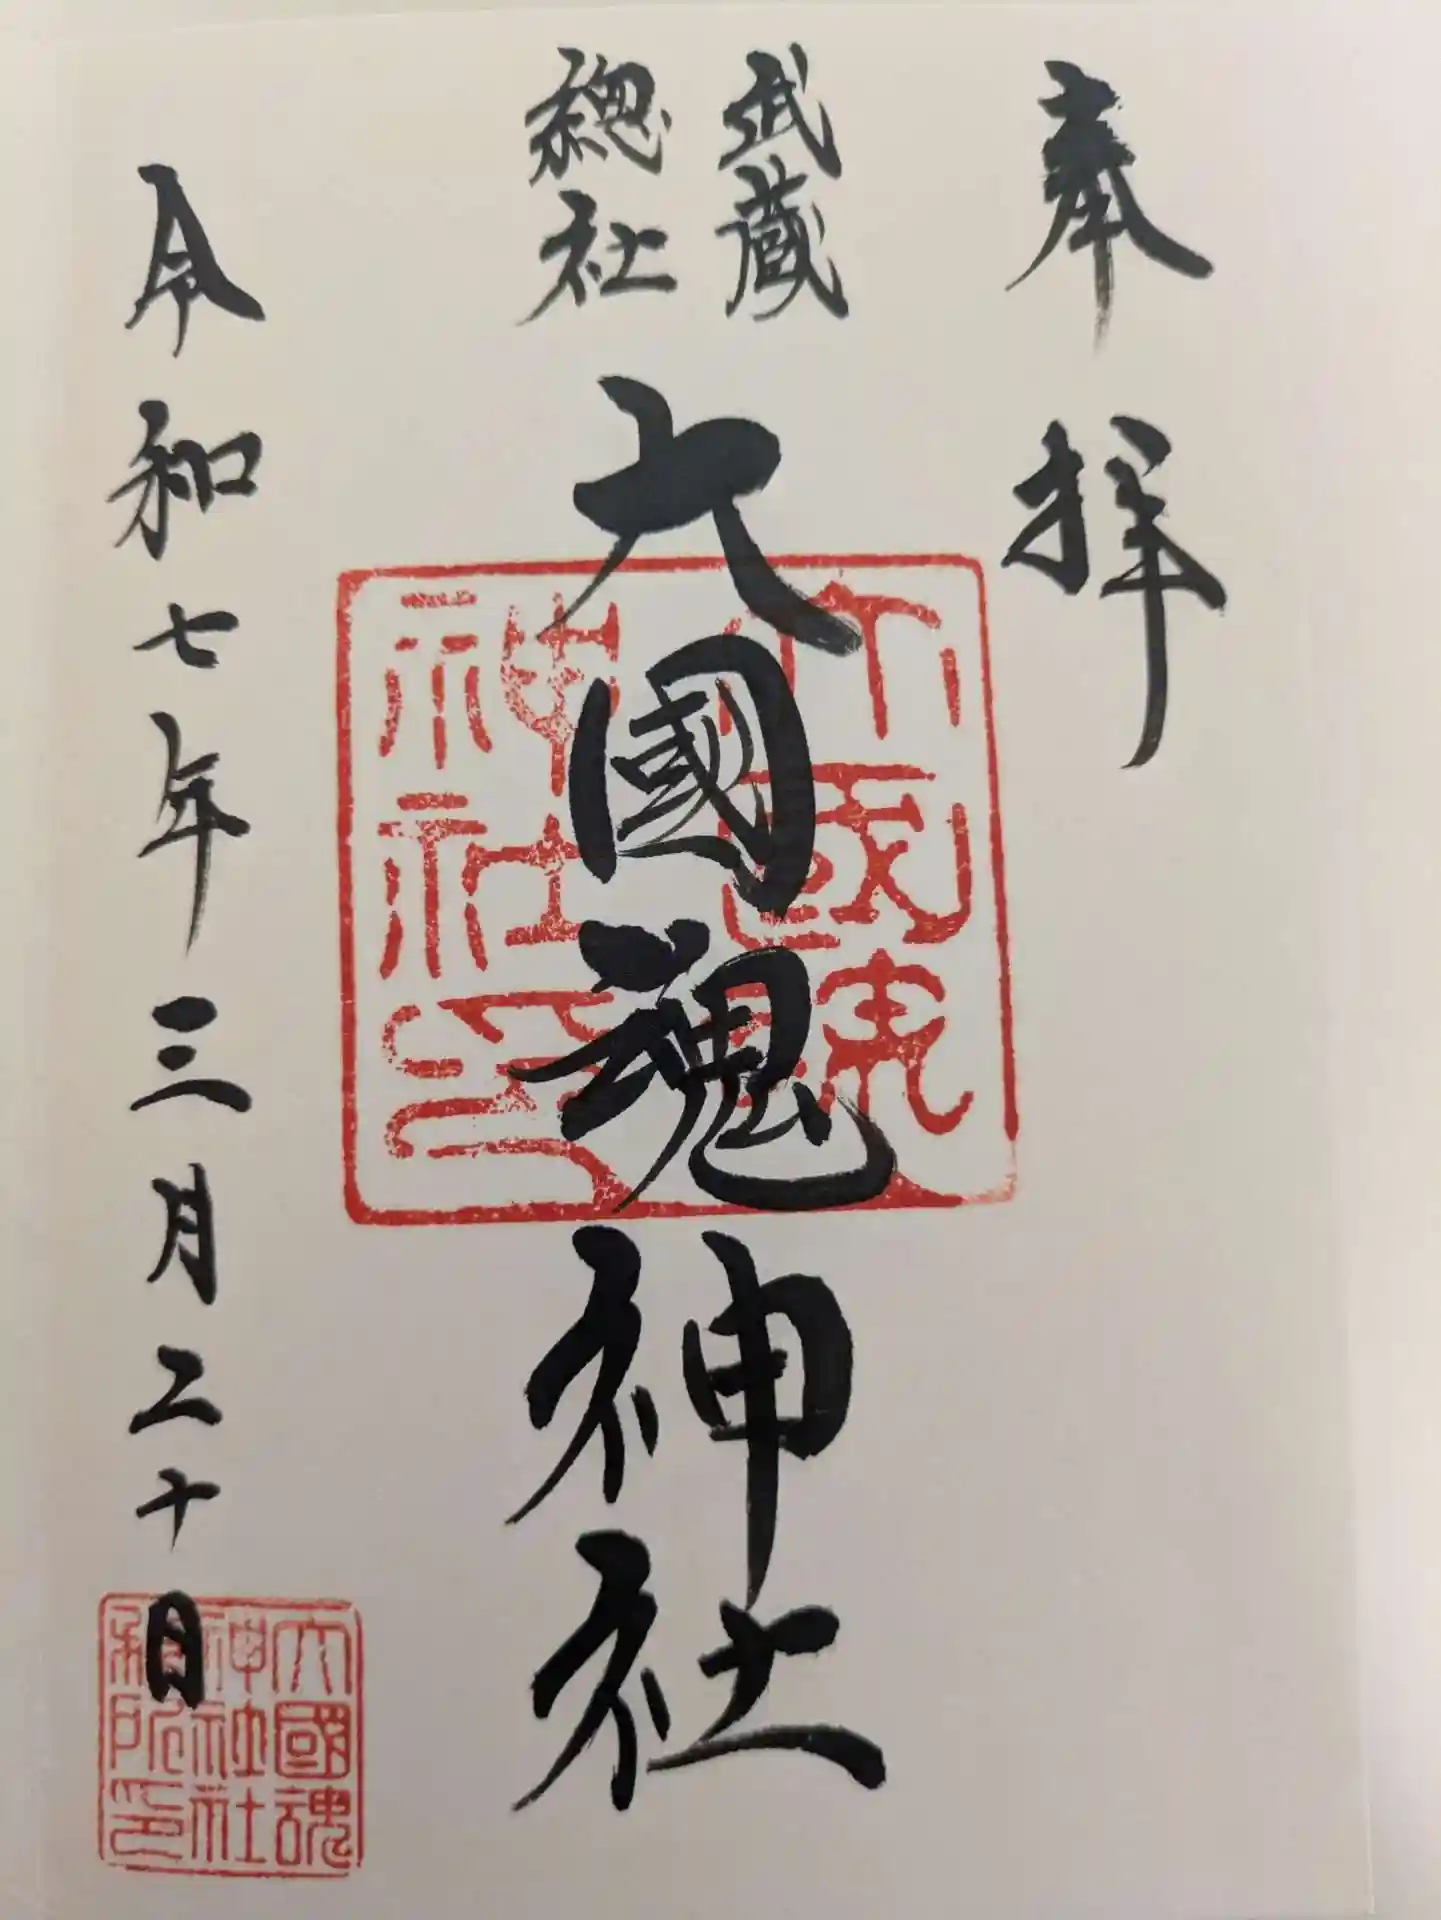 奉拝
武蔵
總社
大國魂神社
令和七年三月二十日
大國魂
神社印
大國魂
神社社
務所印